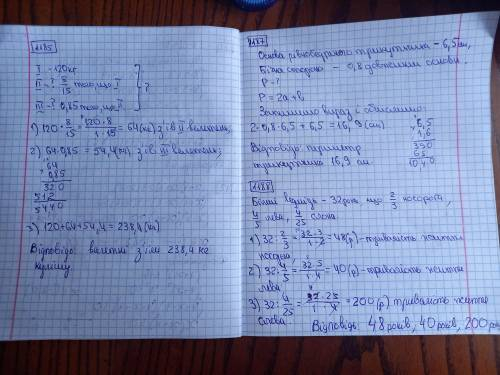 1185
I - 120 кг
II - ? 8/15 того, що I
III - ? 0,85 того, що II
} ?
1) 120 · 8/15 = 120·8/1·15 = 64 (кг) з'їв II велетень;
2) 64·0,85 = 54,4 (кг) з'їв III велетень;
64
×0,85
320
512
5440
3) 120+64+54,4 = 238,4 (кг)
Відповідь: велетні з'їли 238,4 кг
1187
Основа рівнобедреного трикутника – 6,5 см,
Бічна сторона – 0,8 довжини основи.
P - ?
P = 2a+b
Запишимо вираз і обчислимо:
2·0,8·6,5 + 6,5 = 16,9 (см)
6,5
×1,6
390
65
10,40
Відповідь: периметр
трикутника 16,9 см.
1188
Білий ведмідь - 32 роки, що 2/3 носорога,
4/5 лева, 4/25 слона.
1) 32 : 2/3 = 32·3/1·2 = 48 (р) - тривалість життя
носорога
2) 32 : 4/5 = 32·5/1·4 = 40 (р) - тривалість життя
лева
3) 32 : 4/25 = 32·25/1·4 = 200 (р) тривалість життя
слона.
Відповідь: 48 років, 40 років, 200